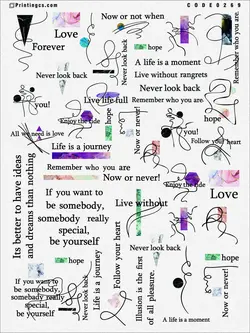 Printingcs.com
CODE0269
Now or not when
Love
Forever
Look back
Never look back
hope
Remember who you are
A life is a moment
Never look back
Live without rangrets
Never look back
Live life full
Remember who you are
hope
you!
you!
Enjoy the ride
All we need is love
Now or never!
Follow your heart
Life is a journey
hope
Its better to have ideas
and dreams than nothing
Remember who you are
Now or never!
Enjoy the ride
If you want to
be somebody,
somebody really
special,
be yourself
Live without
Love
Follow your heart
Life is a journey
Never look back
hope
hope
Illusion is the first
of all pleasure.
Now or never!
If you want to
be somebody,
somebody really
special,
be yourself
Never look back
A life is a moment